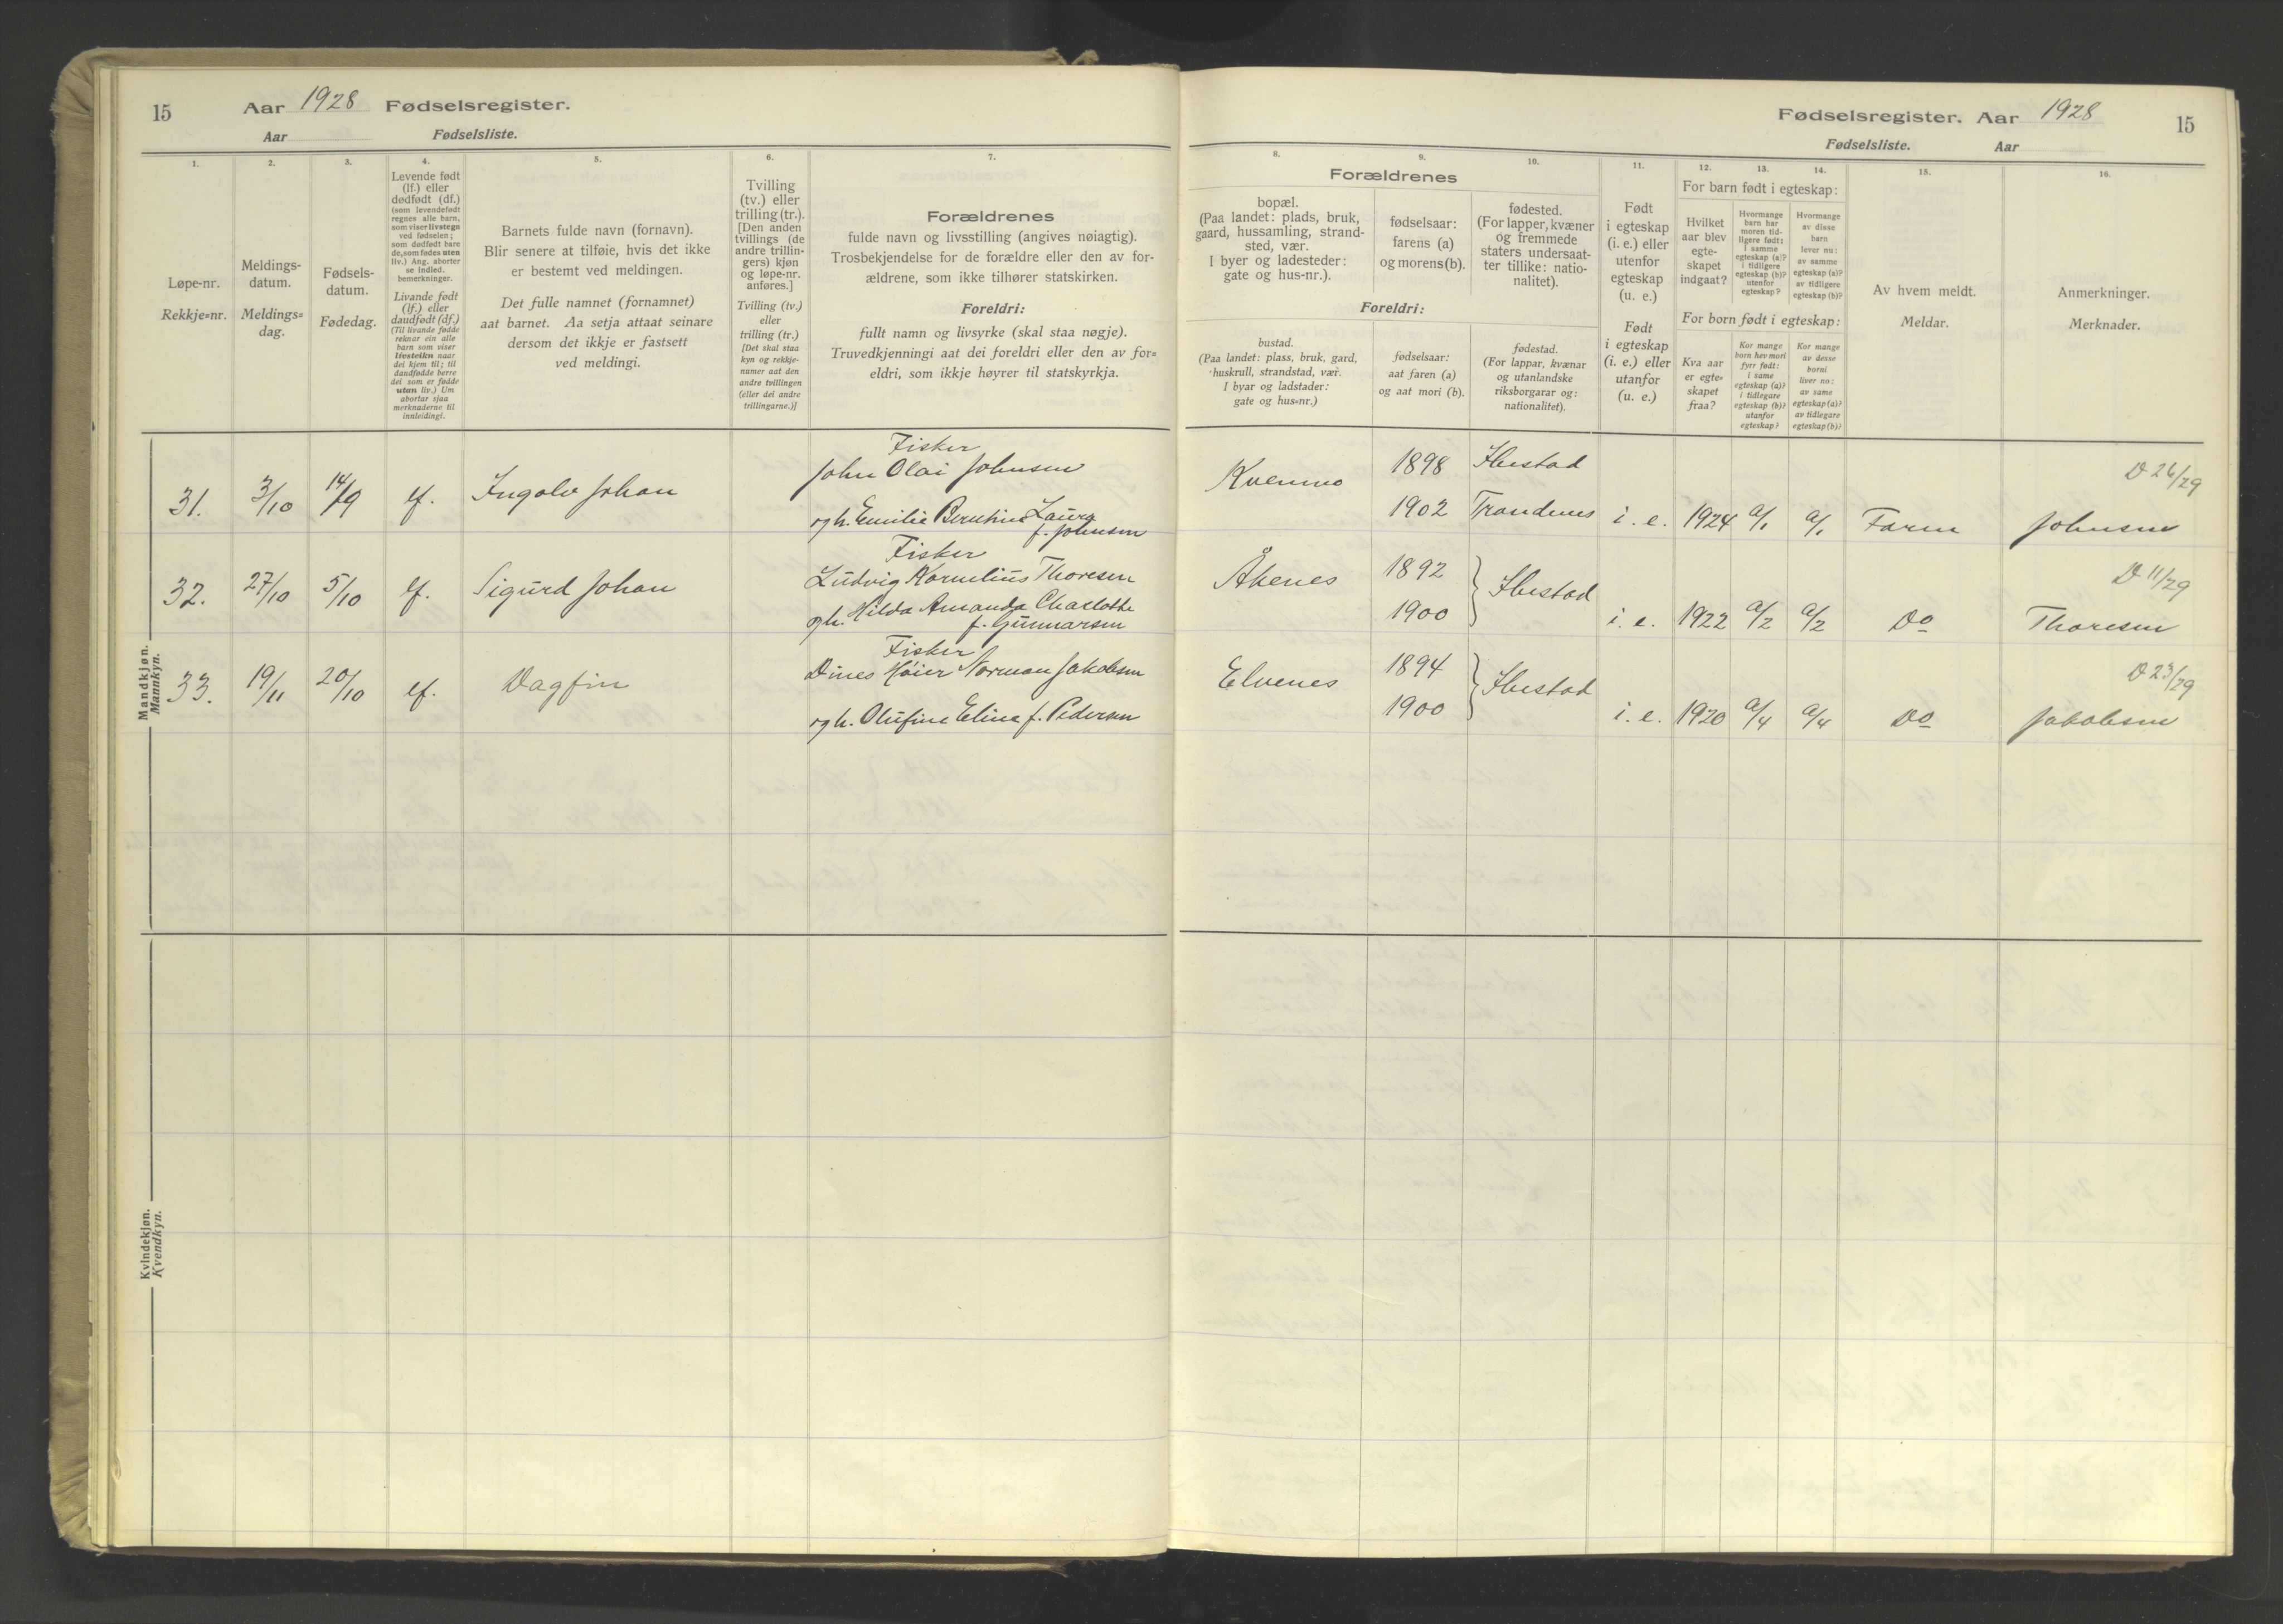 15 Aar 1928 Fødselsregister.
Aar Fødselsliste.
1. 2. 3. 4. 5. 6. 7.
Løpe-nr.
Rekkje=nr.
Meldings-
datum.
Meldings=
dag.
Fødsels-
datum.
Fødedag.
Levende født
(lf.) eller
dødfødt (df.)
(som levendefødt
regnes alle barn,
som viser livstegn
ved fødselen;
som dødfødt bare
de, som fødes uten
liv.) Ang. aborter
se indled.
bemerkninger.
Livande født
(lf.) eller
daudfødt (df.)
(Til livande fødde
reknar ein alle
barn som viser
livsteikn naar
dei kjem til; til
daudfødde berre
dei som er fødde
utan liv.) Um
abortar sjaa
merknaderne til
innleidingi.
Barnets fulde navn (fornavn).
Blir senere at tilføie, hvis det ikke
er bestemt ved meldingen.
Det fulle namnet (fornamnet)
aat barnet. Aa setja attaat seinare
dersom det ikkje er fastsett
ved meldingi.
Tvilling
(tv.) eller
trilling (tr.).
[Den anden
tvillings (de
andre trillin-
gers) kjøn
og løpe-nr.
anføres.]
Tvilling (tv.)
eller
trilling (tr.)
[Det skal staa
kyn og rekkje-
numer aat den
andre tvillingen
(eller dei andre
trillingarne.)]
Forældrenes
fulde navn og livsstilling (angives nøiagtig).
Trosbekjendelse for de forældre eller den av for-
ældrene, som ikke tilhører statskirken.
Foreldri:
fullt namn og livsyrke (skal staa nøgje).
Truvedkjenningi aat dei foreldri eller den av for=
eldri, som ikkje høyrer til statskyrkja.
Mandkjøn.
Mannkyn.
Fisker
31. 3/10 14/9 lf. Ingolv Johan John Olai Johnsen
og h. Emilie Berntine Laura
f. Johnsen
Fisker
32. 27/10 5/10 lf. Sigurd Johan Ludvig Kornelius Thoresen
og h. Hilda Amanda Charlotte
f. Gunnarsen
Fisker
33. 19/11 20/10 lf. Dagfin Dines Høier Norman Jakobsen
og h. Olufine Eline f. Pedersen
Kvindekjøn.
Kvendkyn.
Fødselsregister. Aar 1928 15
Fødselsliste. Aar
8. 9. 10. 11. 12. 13. 14. 15. 16.
Forældrenes
bopæl.
(Paa landet: plads, bruk,
gaard, hussamling, strand-
sted, vær.
I byer og ladesteder:
gate og hus-nr.).
fødselsaar:
farens (a)
og morens (b).
fødested.
(For lapper, kvæner
og fremmede
staters undersaat-
ter tillike: natio-
nalitet).
Foreldri:
bustad.
(Paa landet: plass, bruk, gard,
huskrull, strandstad, vær.
I byar og ladstader:
gate og hus=nr.)
fødselsaar:
aat faren (a)
og aat mori (b).
fødestad.
(For lappar, kvænar
og utanlandske
riksborgarar og:
nationalitet).
Født
i egteskap
(i. e.) eller
utenfor
egteskap
(u. e.)
Født
i egteskap
(i. e.) eller
utanfor
(u. e.)
For barn født i egteskap:
Hvilket
aar blev
egte-
skapet
indgaat?
Hvormange
barn har
moren tid-
ligere født:
i samme
egteskap (a)?
i tidligere
egteskap (b)?
utenfor
egteskap?
Hvormange
av disse
barn
lever nu:
av samme
egteskap (a)?
av tidligere
egteskap (b)?
For born født i egteskap:
Kva aar
er egte=
skapet
fraa?
Kor mange
born hev mori
fyrr født:
i same
egteskap (a)?
i tidlegare
egteskap (b)?
utanfor
egteskap?
Kor mange
av desse
borni
liver no:
av same
egteskap (a)?
av tidlegare
egteskap (b)?
Av hvem meldt.
Meldar.
Anmerkninger.
Merknader.
Kvenmo 1898 Ibestad D 26/29
1902 Trondenes i. e. 1924 a/1 a/1 Faren Johnsen
Åkenes 1892 Ibestad D 11/29
1900 i. e. 1922 a/2 a/2 Do Thoresen
Elvenes 1894 Ibestad D 23/29
1900 i. e. 1920 a/4 a/4 Do Jakobsen